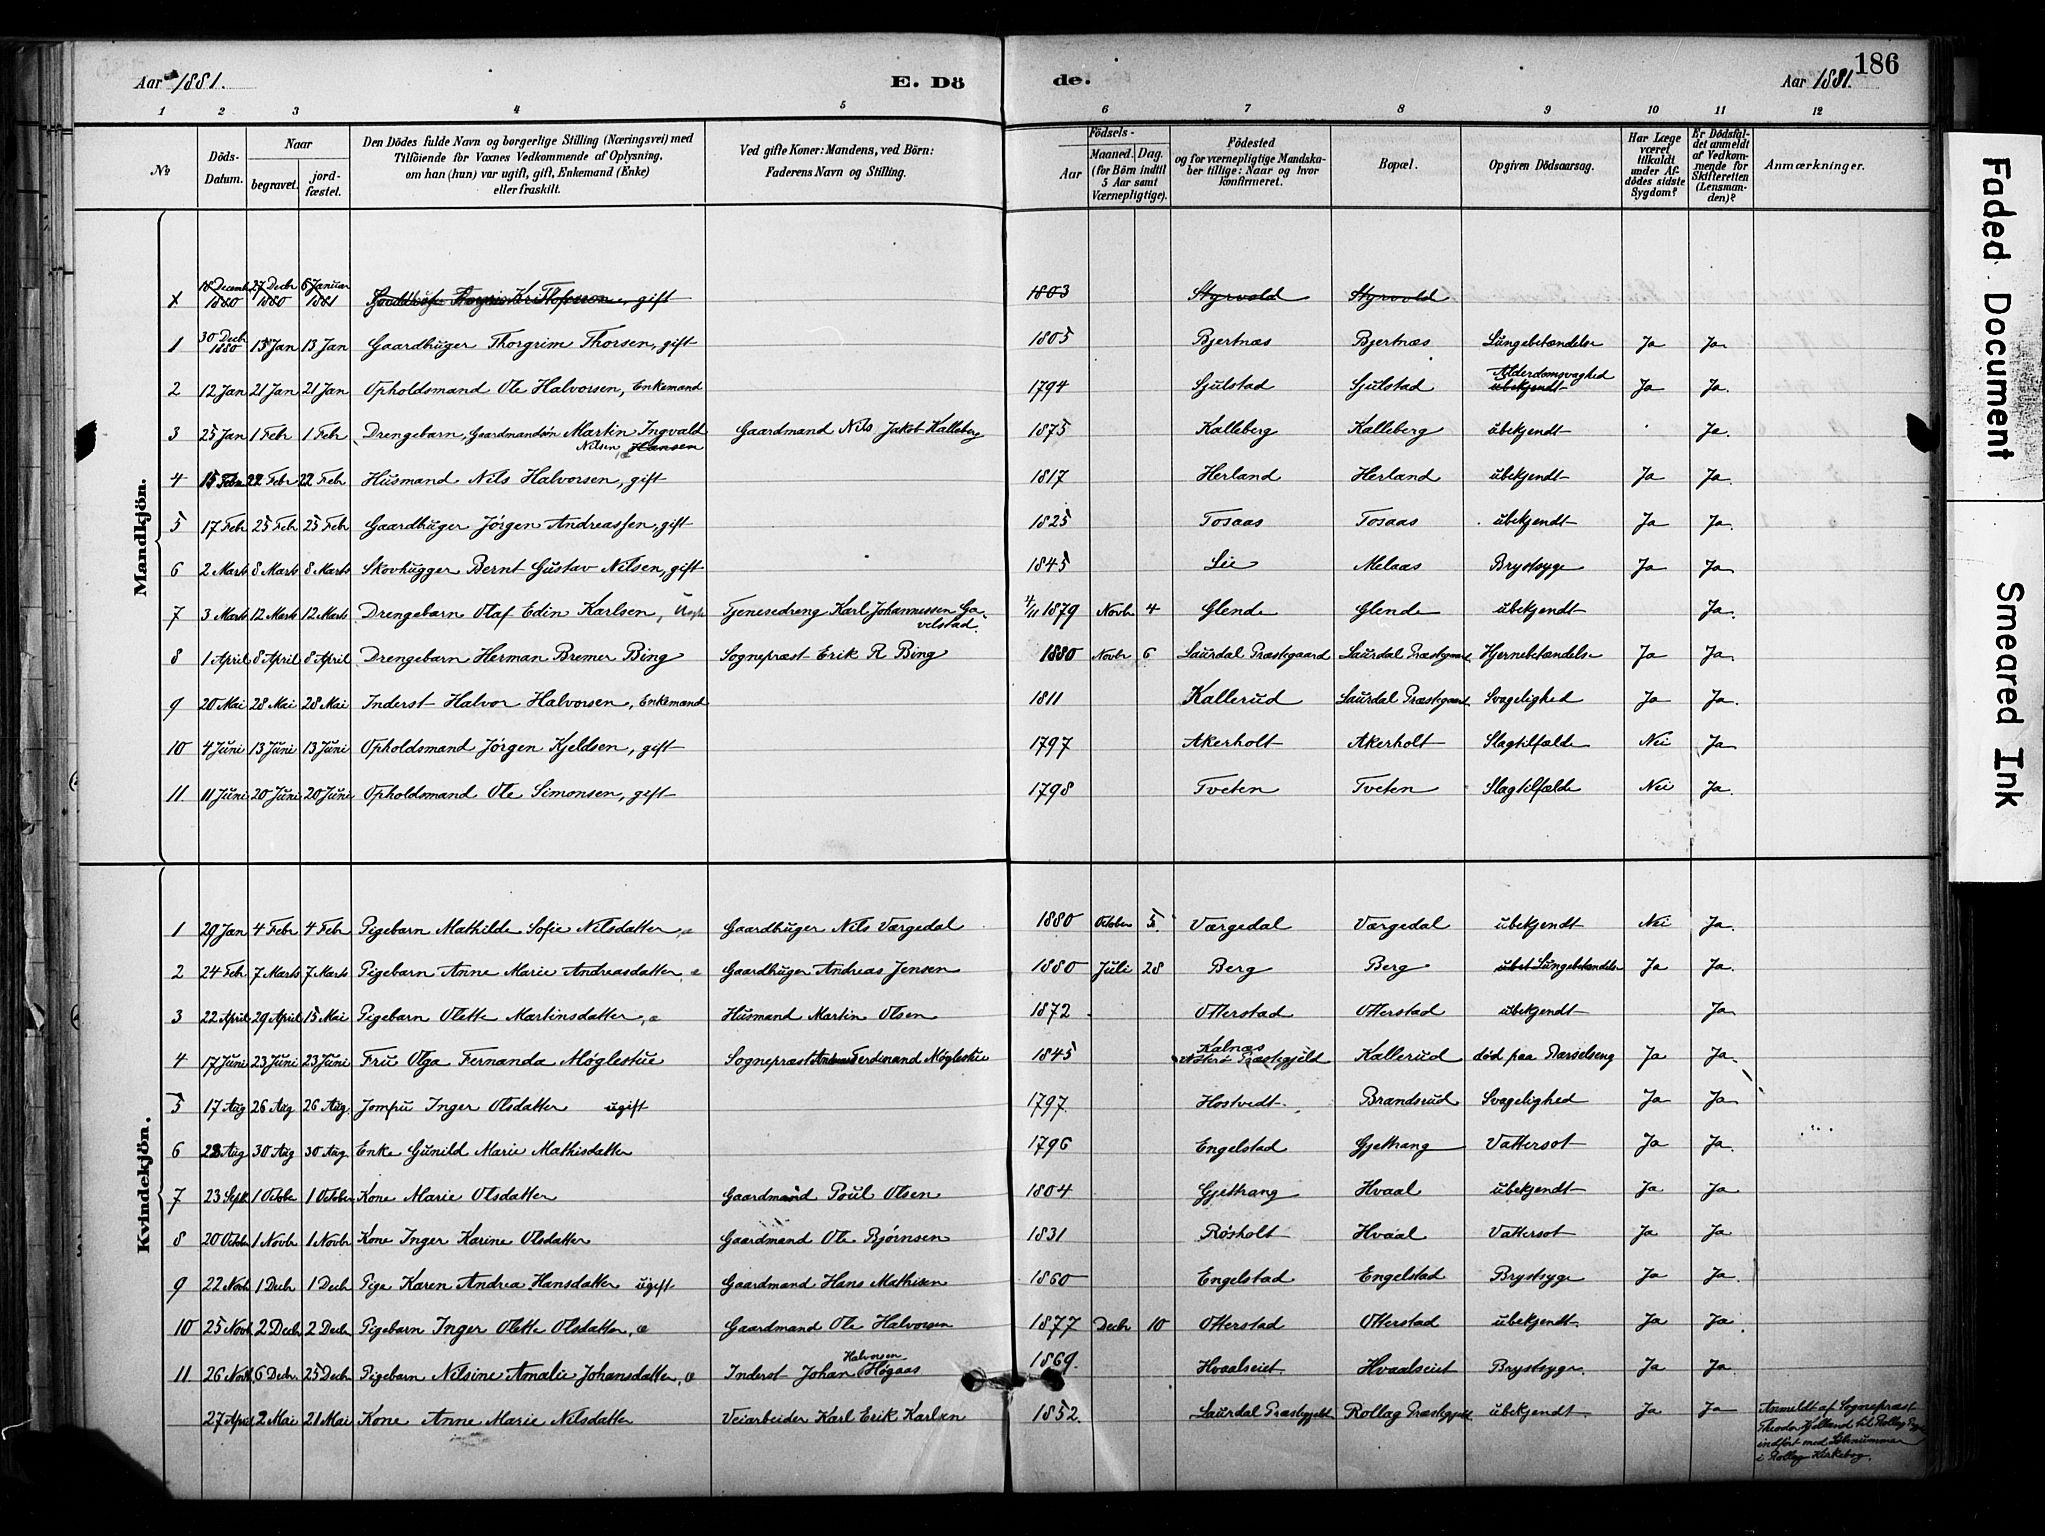 186
Aar 1881. E. Dö
de. Aar 1881.
1 2 3 4 5 6 7 8 9 10 11 12
No
Döds-Datum.
Naar
begravet.
jord-fæstet.
Den Dödes fulde Navn og borgerlige Stilling (Næringsvei) med
Tilföiende for Voxnes Vedkommende af Oplysning,
om han (hun) var ugift, gift, Enkemand (Enke)
eller fraskilt.
Ved gifte Koner: Mandens, ved Börn:
Faderens Navn og Stilling.
Födsels-
Aar
Maaned. Dag.
(for Börn indtil
5 Aar samt
Værnepligtige).
Födested
og for værnepligtige Mandska-
ber tillige: Naar og hvor
konfirmeret.
Bopæl.
Opgiven Dödsaarsag.
Har Læge
været
tilkaldt
under Af-
dödes sidste
Sygdom?
Er Dödsfal-
det anmeldt
af Vedkom-
mende for
Skifteretten
(Lensman-
den)?
Anmærkninger.
Mandkjön.
18 Decemb 1880 27 Decbr 1880 6 Januar 1881 gift 1803 Styrvold Styrvold
1 30 Decb 1880 13 Jan 13 Jan Gaardbruger Thorgrim Thorsen, gift 1805 Bjertnæs Bjertnæs Lungebetændelse Ja Ja
2 12 Jan 21 Jan 21 Jan Opholdsmand Ole Halvorsen, Enkemand 1794 Gjulstad Gjulstad Alderdomsvaghed ubekjendt Ja Ja.
3 25 Jan 1 Febr 1 Febr Drengebarn, Gaardmandsøn Martin Ingvald Nilsen Hansen Gaardmand Nils Jakob Kalleberg 1875 Kalleberg Kalleberg ubekjendt Ja.
4 15 Febr 22 Febr 22 Febr Husmand Nils Halvorsen, gift 1817 Herland Herland ubekjendt Ja Ja.
5 17 Febr 25 Febr 25 Febr Gaardbruger Jörgen Andreassen, gift 1825 Tosaas Tosaas ubekjendt Ja Ja.
6 2 Marts 8 Marts 8 Marts Skovhugger Bernt Gustav Nilsen, gift 1845 Lie Melaas Brystsyge Ja Ja
7 3 Marts 12 Marts 12 Marts Drengebarn Olaf Edin Karlsen, Tjenesedreng Karl Johannessen Gavelstad 4/11 1879 Novbr 4 Glende Glende ubekjendt Ja.
8 1 April 8 April 8 April Drengebarn Herman Bremer Bing Sognepræst Erik R Bing 1880 Novbr 6 Laurdal Præstegaard Laurdal Præstegaard Hjernebetændelse Ja Ja
9 20 Mai 28 Mai 28 Mai Inderst Halvor Halvorsen, Enkemand 1811 Kallerud Laurdal Præstegaard Svagelighed Ja Ja.
10 4 Juni 13 Juni 13 Juni Opholdsmand Jörgen Kjeldsen, gift 1797 Akerholt Akerholt Slagtilfælde Nei Ja
11 11 Juni 20 Juni 20 Juni Opholdsmand Ole Simonsen, gift 1798 Tveten Tveten Slagtilfælde Nei Ja.
Kvindekjön.
1 29 Jan 4 Febr 4 Febr Pigebarn Mathilde Sofie Nilsdatter æ Gaardbruger Nils Værgedal 1880 October 5. Værgedal Værgedal ubekjendt Nei Ja.
2 24 Feb. 7 Marts 7 Marts Pigebarn Anne Marie Andreasdatter æ Gaardbruger Andreas Jensen 1880 Juli 28 Berg Berg ubek Lungebetændelse Ja Ja.
3 22 April 29 April 15 Mai Pigebarn Olette Martinsdatter, æ Husmand Martin Olsen 1872 Otterstad Otterstad ubekjendt Ja
4 17 Juni 23 Juni 23 Juni Fru Olga Fernanda Møglestue Sognepræst Andreas Ferdinand Møglestue 1845 Kalnæs Præstegjeld Kallerud död paa Barselseng Ja Ja
5 17 Aug 26 Aug 26 Aug. Jomfru Inger Olsdatter ugift 1797. Hostvedt. Brandsrud Svagelighed Ja Ja
6 23 Aug 30 Aug 30 Aug. Enke Gunild Marie Mathisdatter 1796 Engelstad Gjettrang Vattersot Ja Ja.
7 23 Sept. 1 Octobr 1 October Kone Marie Olsdatter Gaardmand Poul Olsen 1804 Gjettrang Hvaal ubekjendt Ja Ja
8 20 Octobr 1 Novbr 1 Novbr Kone Inger Karine Olsdatter Gaardmand Ole Bjørnsen 1831 Røsholt Hvaal Vattersot Ja Ja
9 22 Novb 1 Decbr 1 Decb Pige Karen Andrea Hansdatter ugift Gaardmand Hans Mathisen 1860 Engelstad Engelstad Brystsyge Ja Ja.
10 25 Novb. 2 Decb 2 Decb Pigebarn Inger Olette Olsdatter, æ Gaardmand Ole Halvorsen 1877 Decbr 10 Otterstad Otterstad ubekjendt. Ja Ja
11 26 Novb 6 Decb. 25 Decb Pigebarn Nilsine Amalie Johansdatter, æ Inderst Johan Halvorsen Høgaas 1869. Hvaalseiet. Hvaalseiet Brystsyge. Ja Ja
27 April 2 Mai 21 Mai Kone Anne Marie Nilsdatter Veiarbeider Karl Erik Karlsen 1852. Laurdal Præstegjeld Rollag Præstegjeld ubekjendt. Ja Ja Anmeldt af Sognepræst
Theodor Kjelland til Rollag
indført med Löbenummer
i Rollag Kirkebog.
Faded Document
Smeared Ink